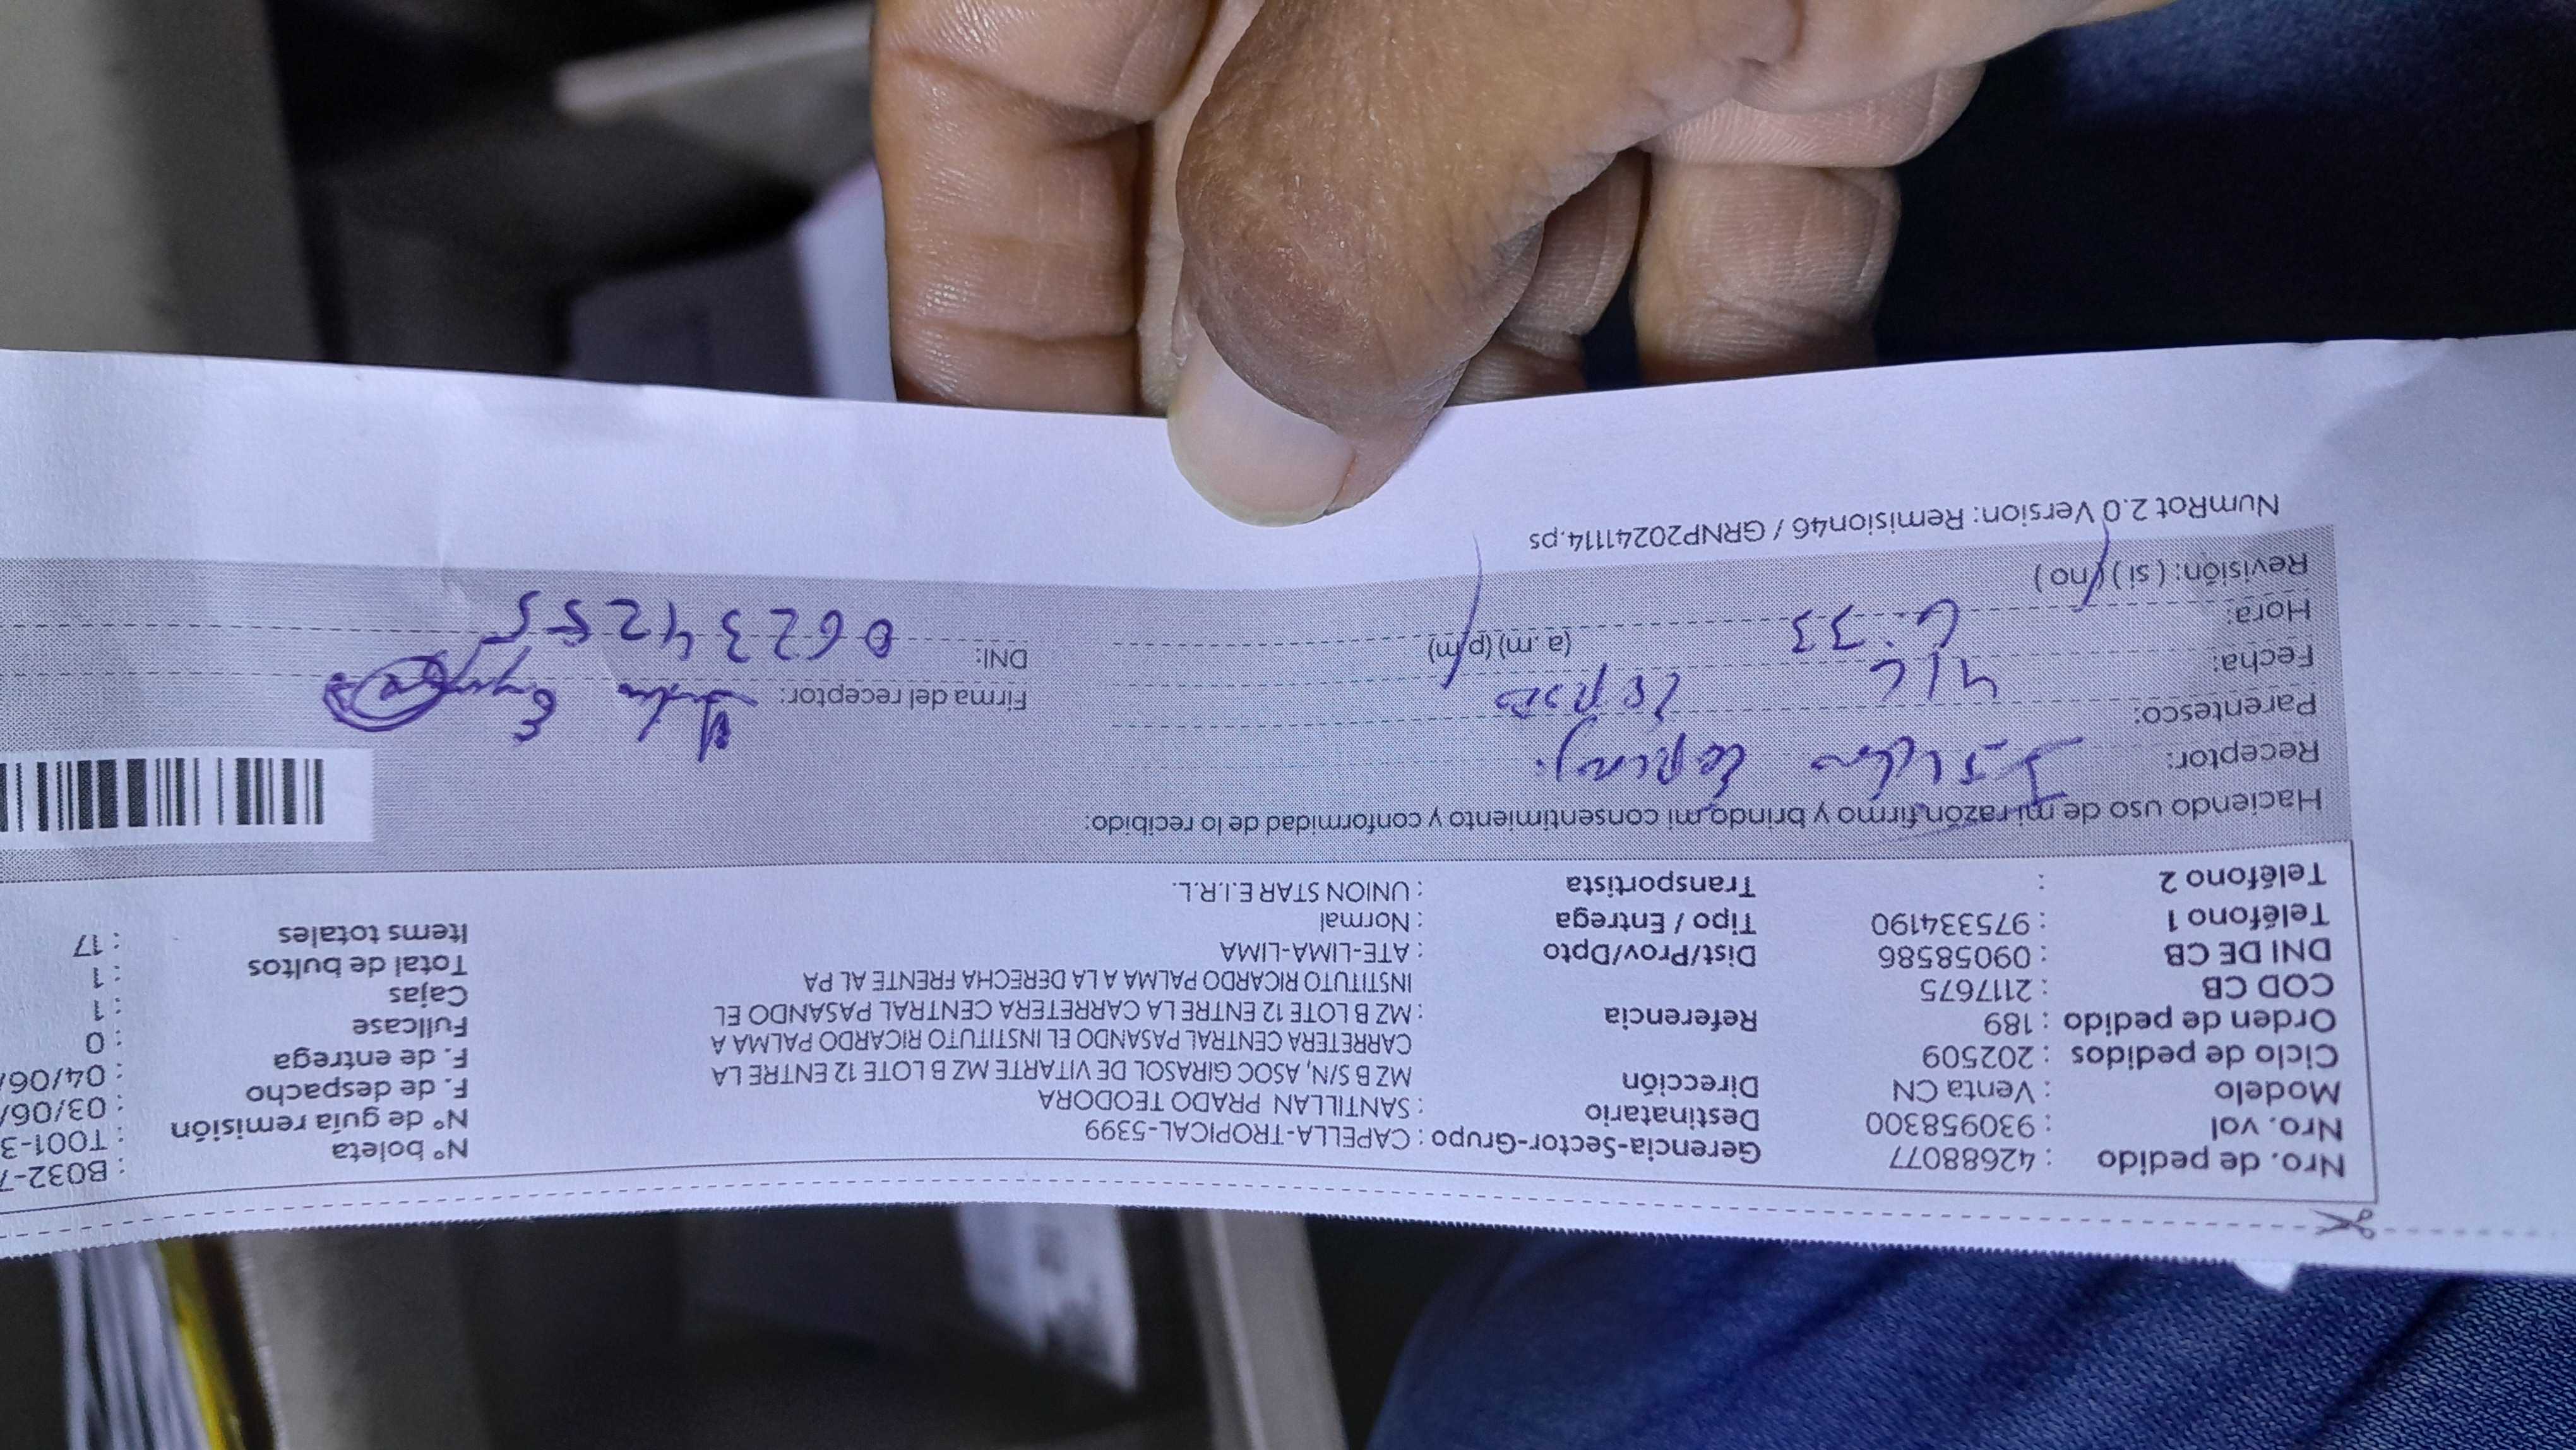 Nro. de pedido : 42688077 Gerencia-Sector-Grupo : CAPELLA-TROPICAL-5399 N° boleta : B032-7
Nro. vol : 930958300 Destinatario : SANTILLAN PRADO TEODORA N° de guía remisión : T001-3
Modelo : Venta CN Dirección MZ B S/N, ASOC GIRASOL DE VITARTE MZ B LOTE 12 ENTRE LA F. de despacho : 03/06/
Ciclo de pedidos : 202509 CARRETERA CENTRAL PASANDO EL INSTITUTO RICARDO PALMA A F. de entrega : 04/06/
Orden de pedido : 189 Referencia : MZ B LOTE 12 ENTRE LA CARRETERA CENTRAL PASANDO EL Fullcase : 0
COD CB : 2117675 INSTITUTO RICARDO PALMA A LA DERECHA FRENTE AL PA Cajas : 1
DNI DE CB : 09058586 Dist/Prov/Dpto : ATE-LIMA-LIMA Total de bultos : 1
Teléfono 1 : 975334190 Tipo / Entrega : Normal Items totales : 17
Teléfono 2 : Transportista : UNION STAR E.I.R.L.
Haciendo uso de mi razón firmo y brindo mi consentimiento y conformidad de lo recibido:
Receptor:
Parentesco: Firma del receptor:
Fecha: 4/6 DNI: 06234255
Hora: 6:33 (a.m) (p/m)
Revisión: ( si ) ( no )
NumRot 2.0 Version: Remision46 / GRNP20241114.ps